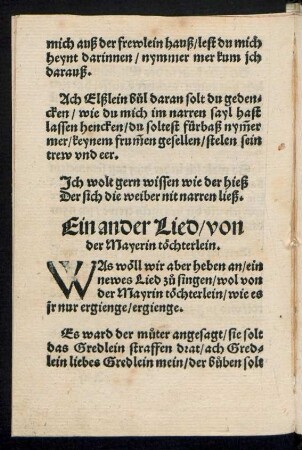 mich auß der frewlein hauß/lest du mich
heynt darinnen/nymmer mer kum jch
darauß.
Ach Elßlein bůl daran solt du geden-
cken/wie du mich im narren sayl hast
lassen hencken/du soltest fürbaß nym̃er
mer/keynem frum̃en gesellen/stelen sein
trew vnd eer.
Jch wolt gern wissen wie der hieß
Der sich die weiber nit narren ließ.
Ein ander Lied/von
der Mayerin töchterlein.
WAs wöll wir aber heben an/ein
newes Lied zů singen/wol von
der Mayrin töchterlein/wie es
jr nur ergienge/ergienge.
Es ward der můter angesagt/sie solt
das Gredlein straffen drat/ach Gred-
lein liebes Gredlein mein/der bůben solt